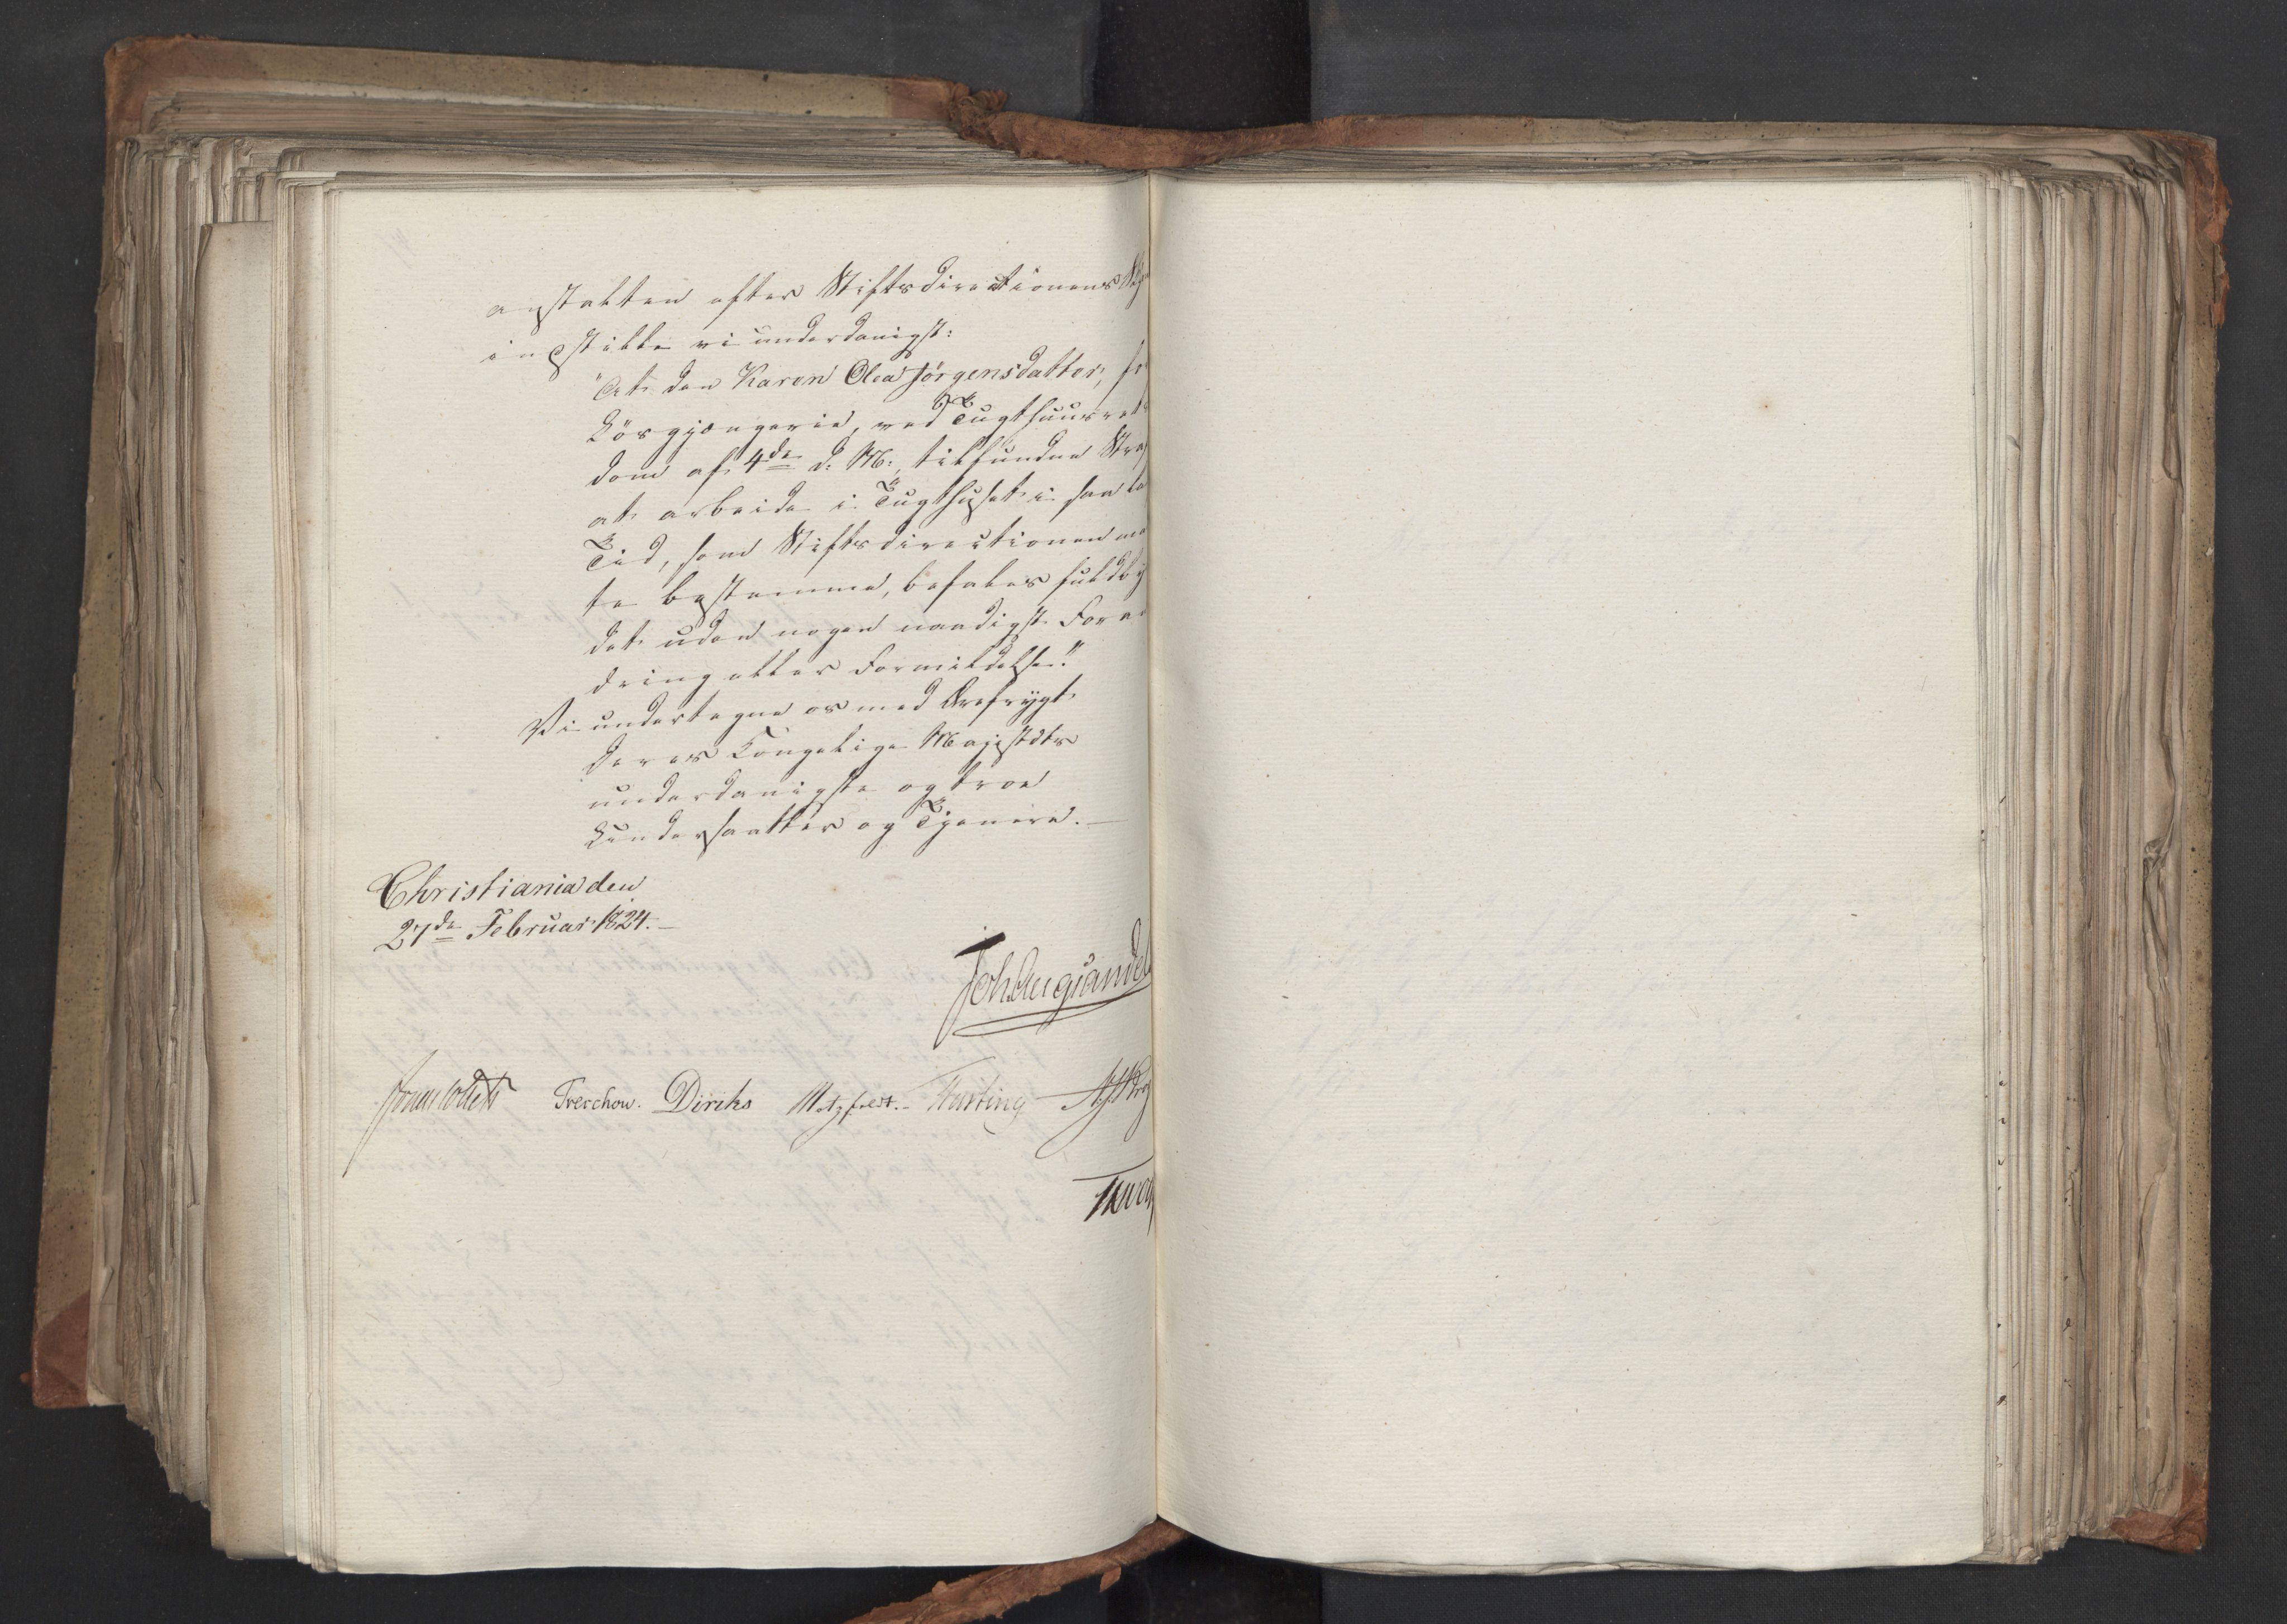 anstalten efter Stiftsdirectionens
indstille vi underdanigst:
"At den Karen Olea Jörgensdatter, for
Lösgjængerie, ved Tugthuusrets
dom af 4de d: M:, tilfundne Straf
at arbeide i Tugthuset i saa la
Tid, som Stiftsdirectionen maa
te bestemme, befales fuldby
det uden nogen naadigst Foran
dring eller Formildelse."
Vi undertegne os med Ærefrygt
Deres Kongelige Majestæts
underdanigste og troe
Undersaatter og Tjenere.
Christiania den
27de Februar 1824.
Joh. Aug: Sandel
Jonas Collett Treschow. Diriks Motzfeldt. Fasting